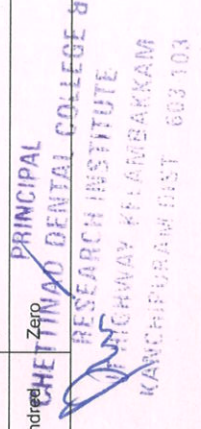 ndred Zero
PRINCIPAL
CHETTINAD DENTAL COLLEGE &
RESEARCH INSTITUTE
HIGHWAY KELAMBAKKAM
KANCHIPURAM DIST 603 103